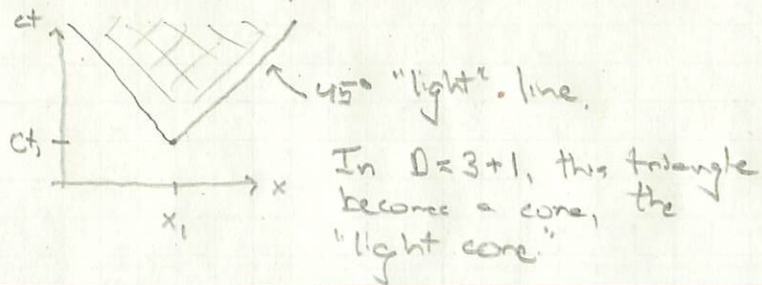 ct
45° "light" line.
ct₁
In D=3+1, this triangle
x
becomes a cone, the
x₁
"light cone."